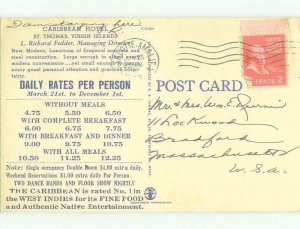 I am staying here!
CARIBBEAN HOTEL
ST. THOMAS, VIRGIN ISLANDS
L. Richard Fedder, Managing Director
New, Modern, Luxurious, fireproof concrete and
steel construction. Large enough to offer every
most modern
convenience, yet small enough to assure
every guest personal attention and gracious
hospitality.
DAILY RATES PER PERSON
March 21st. to December 1st.
WITHOUT MEALS
4.75 5.50 6.50
WITH COMPLETE BREAKFAST
6.00 6.75 7.75
WITH BREAKFAST AND DINNER
9.00 9.75 10.75
WITH ALL MEALS
10.50 11.25 12.25
Note: Single occupancy Double Room $1.00 extra daily.
Weekend Reservations $1.00 extra daily per Person.
TWO DANCE BANDS AND FLOOR SHOW NIGHTLY
THE CARIBBEAN is rated No. 1 in
the WEST INDIES for its FINE FOOD
and Authentic Native Entertainment.
POST CARD
2 CENTS 2
Mr. & Mrs. Wm. E.
Lockwood
Bradford
Massachusetts
U.S.A.